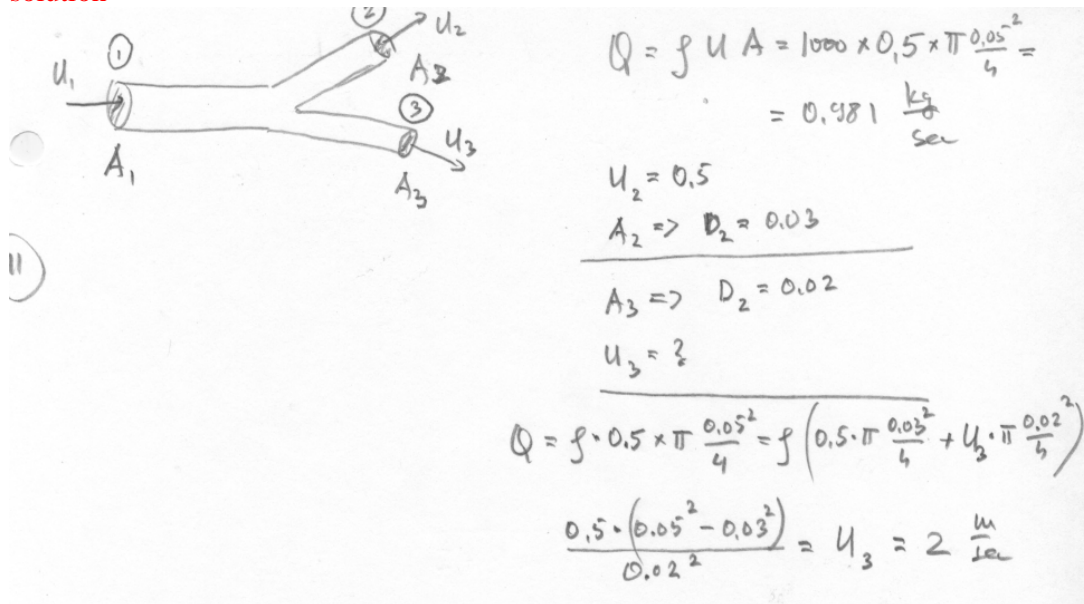 solution
①
②
U₂
U₁
A₂
③
U₃
A₁
A₃
11
Q = ρ U A = 1000 × 0,5 × π 0,05²/4 =
= 0,981 kg/sec
U₂ = 0,5
A₂ => D₂ = 0.03
A₃ => D₂ = 0,02
U₃ = ?
Q = ρ · 0.5 × π 0.05²/4 = ρ (0,5 · π 0.03²/4 + U₃ · π 0.02²/4)
0,5 · (0.05² - 0,03²) / 0.02² = U₃ = 2 m/sec